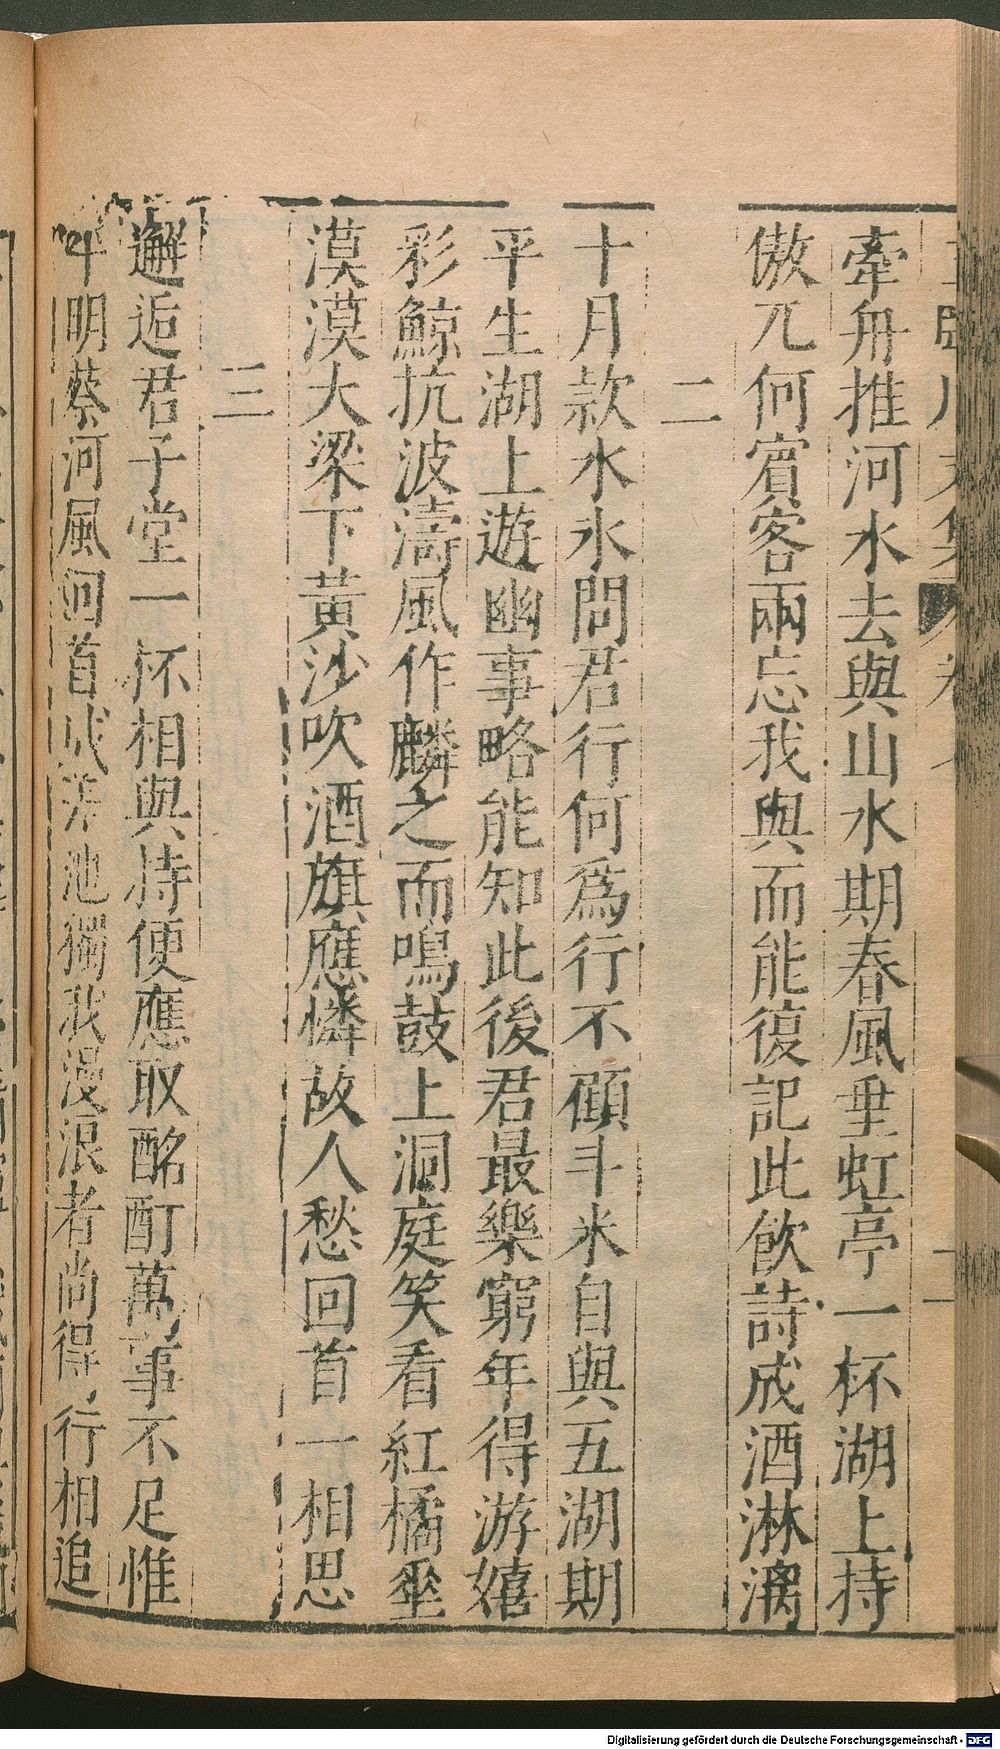 牽舟推河水去與山水期春風垂虹亭一杯湖上持
傲兀何賓客兩忘我與而能復記此飲詩成酒淋漓
二
十月款水氷問君行何爲行不顧斗米自與五湖期
平生湖上遊幽事略能知此後君最樂窮年得游嬉
彩鯨抗波濤風作麟之而鳴鼓上洞庭笑看紅橘垂
漠漠大梁下黃沙吹酒旗應憐故人愁回首一相思
三
邂逅君子堂一杯相與持便應取酩酊萬事不足惟
明蔡河風回首成差池獨我漫浪者尚得行相追
Digitalisierung gefördert durch die Deutsche Forschungsgemeinschaft - DFG